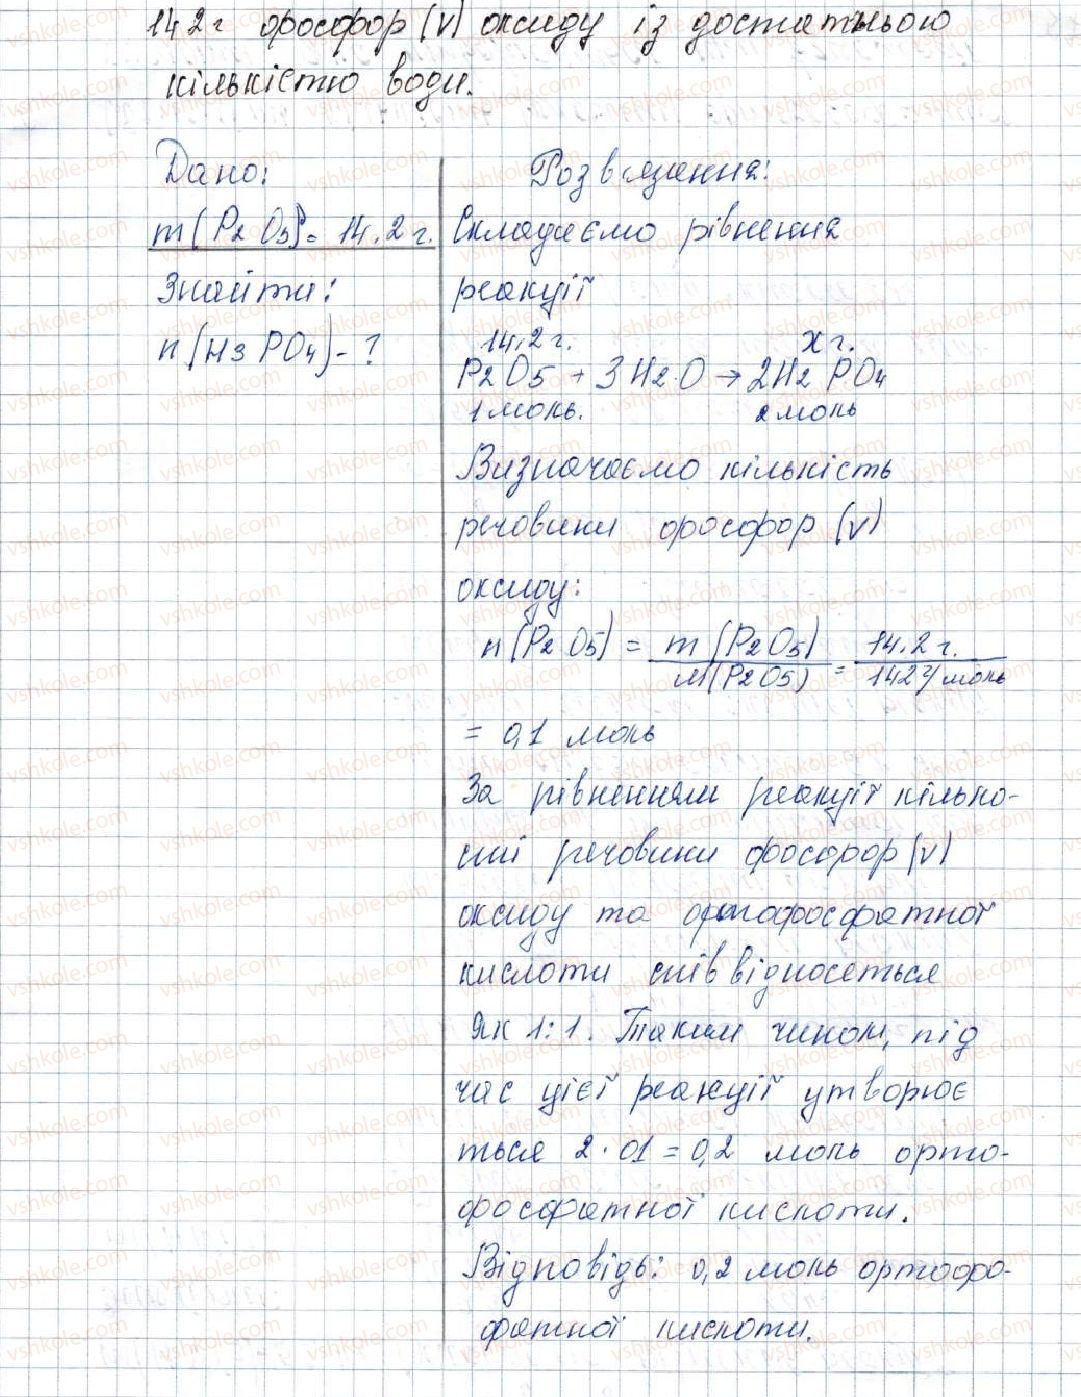 14.2 г фосфор (V) оксиду із достатньою
кількістю води.
Дано:
m(P2O5)= 14.2 г.
Знайти:
n(H3PO4)-?
Розв'язання:
Складаємо рівняння
реакції
14.2 г. x г.
P2O5 + 3H2O → 2H2PO4
1 моль. 2 моль
Визначаємо кількість
речовини фосфор (V)
оксиду:
n(P2O5) = m(P2O5)/M(P2O5) = 14.2 г./142 г/моль
= 0,1 моль
За рівнянням реакції кілько-
сті речовини фосфор (V)
оксиду та ортофосфатної
кислоти співвідноситься
як 1:1. Таким чином, під
час цієї реакції утворює
ться 2·01=0,2 моль орто-
фосфатної кислоти.
Відповідь: 0,2 моль ортофо-
фатної кислоти.
vshkole.com